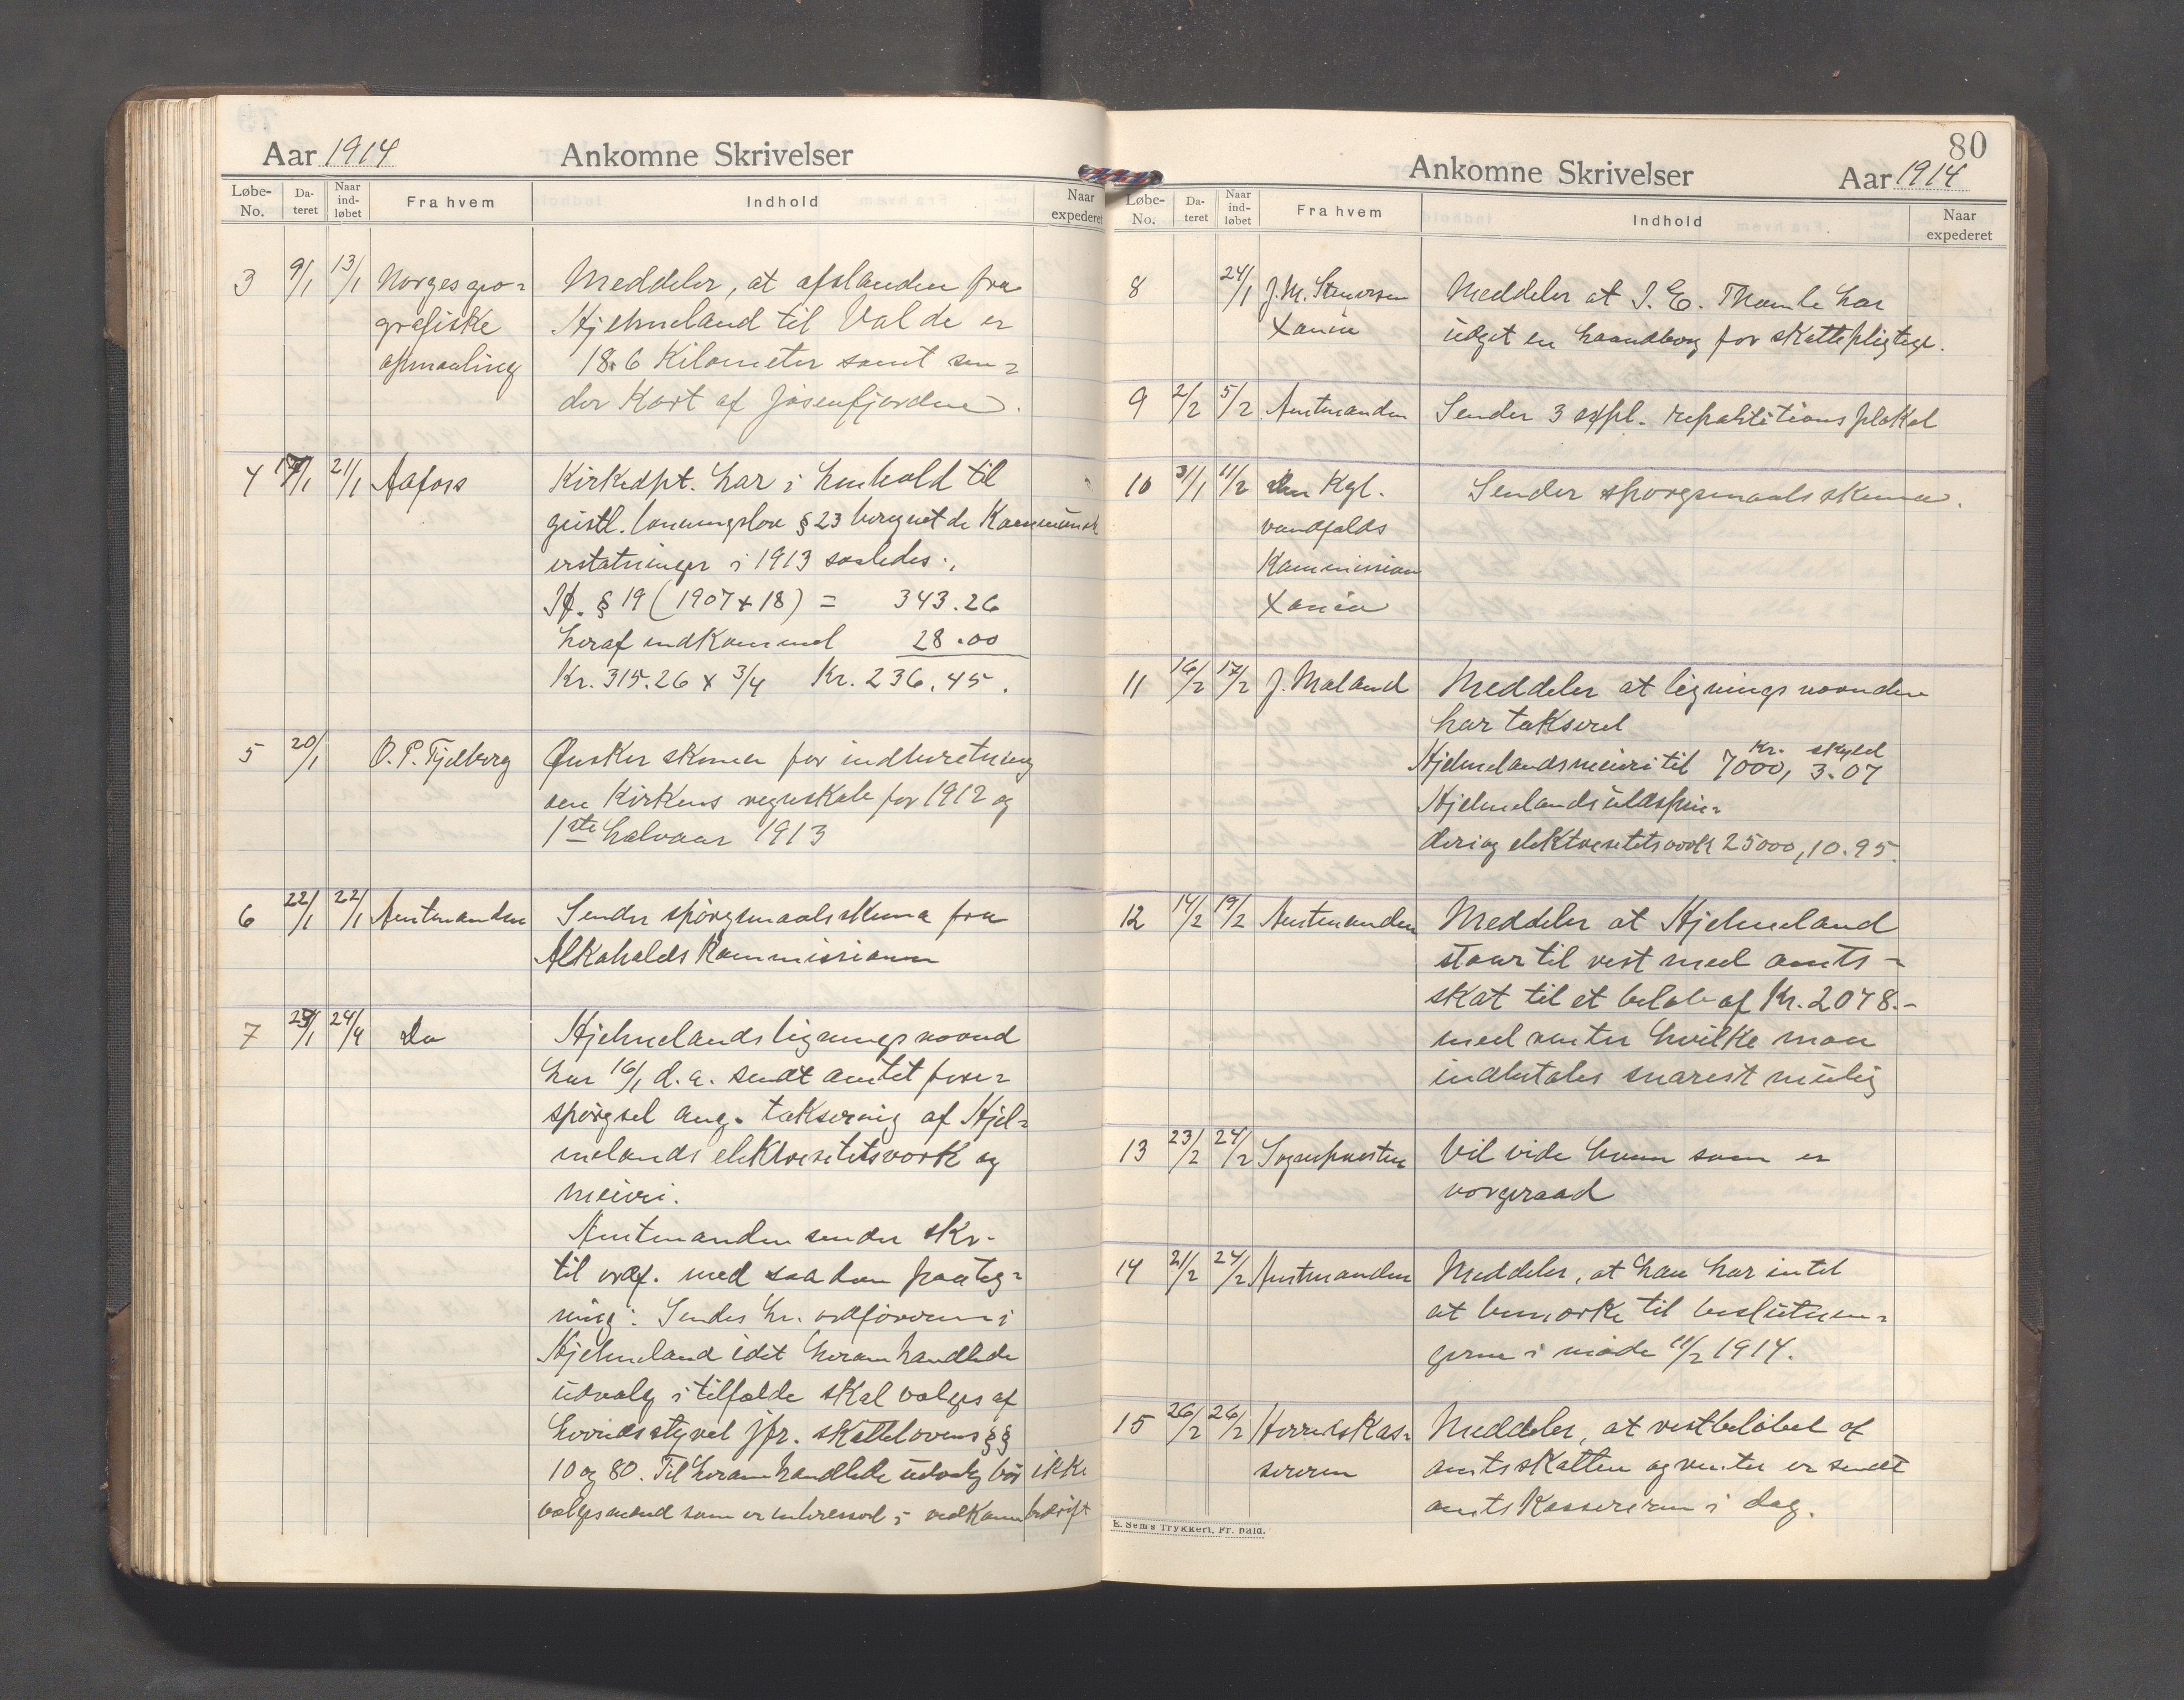 Aar 1914 Ankomne Skrivelser
Løbe-No. Da-teret Naar ind-løbet Fra hvem Indhold Naar expederet
3 9/1 13/1 Norges geo- Meddeler, at afstanden fra
grafiske Hjelmeland til Valde er
opmaaling 18.6 Kilometer samt sen-
der Kart af Jøsenfjorden.
4 17/1 21/1 Aafoss Kirkedpt. har i henhold til
geistl. lønningslov § 23 beregnet de Kommunale
erstatninger i 1913 saaledes:
§ 19 (1907 + 18) = 343.26
heraf indkommed 28.00
Kr. 315.26 x 3/4 Kr. 236.45.
5 20/1 O. P. Tjelberg Ønsker skema for indberetning
om Kirkens regnskab for 1912 og
1ste halvaar 1913
6 22/1 22/1 Amtmanden Sender spørgsmaalsskema fra
Alkoholdskommissionen
7 23/1 24/1 Do Hjelmelands ligningsnævnd
har 16/1 d.a. sendt amtet fore-
spørgsel ang. taksering af Hjel-
melands elektresitetsværk og
meieri.
Amtmanden sender skr.
til ordf. med saadan paateg-
ning: Sendes hr. ordføreren i
Hjelmeland idet heromhandlede
udvalg i tilfælde skal vælges af
herredsstyret jfr. skattelovens §§
10 og 80. Til heromhandlede udvalg bør ikke
vælges mænd som er interessert i vedkom bedrift
80
Ankomne Skrivelser Aar 1914
Løbe-No. Da-teret Naar ind-løbet Fra hvem Indhold Naar expederet
8 24/1 J. M. Stenersen Meddeler at J. E. Thomle har
Xania udgit en haandbog for skattepligtige.
9 2/2 5/2 Amtmanden Sender 3 expl. repartitionsplakat
10 31/1 11/2 Den Kgl. Sender spørgsmaalsskema.
vandfalds
Kommission
Xania
11 16/2 17/2 J. Maland Meddeler at ligningsnævnden
har takseret
Kr. skyld
Hjelmelandsmeieri til 7000, 3.07
Hjelmelands uldspin-
deri og elektresitetsværk 25000, 10.95.
12 14/2 19/2 Amtmanden Meddeler at Hjelmeland
staar til rest med amts-
skat til et beløb af Kr. 2078.-
med renter hvilke maa
indbetales snarest mulig
13 23/2 24/2 Sognepresten Vil vide hvem som er
vergeraad
14 21/2 24/2 Amtmanden Meddeler, at han har intet
at bemærke til beslutnin-
gerne i møde 11/2 1914.
15 26/2 26/2 Herredskas- Meddeler, at restbeløbet af
sereren amtsskatten og renter er sendt
amtskassereren i dag.
E. Sem's Trykkeri, Fr. hald.